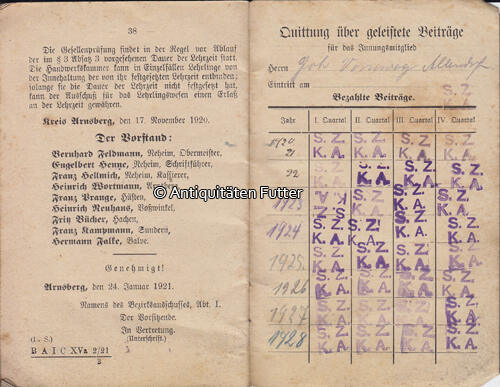 38
Die Gesellenprüfung findet in der Regel vor Ablauf
der im § 3 Absatz 3 vorgesehenen Dauer der Lehrzeit statt.
Die Handwerkskammer kann in Einzelfällen Lehrlinge von
der Innehaltung der von ihr festgesetzten Lehrzeit entbinden;
solange sie die Dauer der Lehrzeit nicht festgesetzt hat,
kann der Ausschuß für das Lehrlingswesen einen Erlaß
an der Lehrzeit gewähren.
Kreis Arnsberg, den 17. November 1920.
Der Vorstand:
Bernhard Feldmann, Neheim, Obermeister,
Engelbert Henne, Neheim, Schriftführer,
Franz Hellmich, Neheim, Kassierer,
Heinrich Wortmann,
Franz Prange, Hüsten,
Heinrich Neuhaus, Voßwinkel,
Fritz Bücher, Hachen,
Franz Kampmann, Sundern,
Hermann Falke, Balve.
Genehmigt!
Arnsberg, den 24. Januar 1921.
Namens des Bezirksausschusses, Abt. I.
Der Vorsitzende.
In Vertretung.
(L. S.) (Unterschrift.)
B A I C XVa 2/21
2
© Antiquitäten Futter
Quittung über geleistete Beiträge
für das Innungsmitglied
Herrn Joh
Eintritt am
S. Z.
K. A.
Bezahlte Beiträge.
Jahr I. Quartal II. Quartal III. Quartal IV. Quartal
1920 S. Z. S. Z. S. Z. S. Z.
21 K. A. K. A. K. A. K. A.
S. Z. S. Z. S. Z. S. Z.
22 K. A. K. A. K. A. K. A.
1923 K. A. S. Z. S. Z. S. Z.
S. Z. K. A. K. A. K. A.
1924 S. Z. S. Z. S. Z. S. Z.
K. A. K. A. K. A. K. A.
S. Z. S. Z. S. Z. S. Z.
1925 K. A. K. A. K. A. K. A.
S. Z. S. Z. S. Z. S. Z.
1926 K. A. K. A. K. A. K. A.
S. Z. S. Z. S. Z. S. Z.
1927 K. A. K. A. K. A. K. A.
S. Z. S. Z. S. Z. S. Z.
1928 K. A. K. A. K. A. K. A.